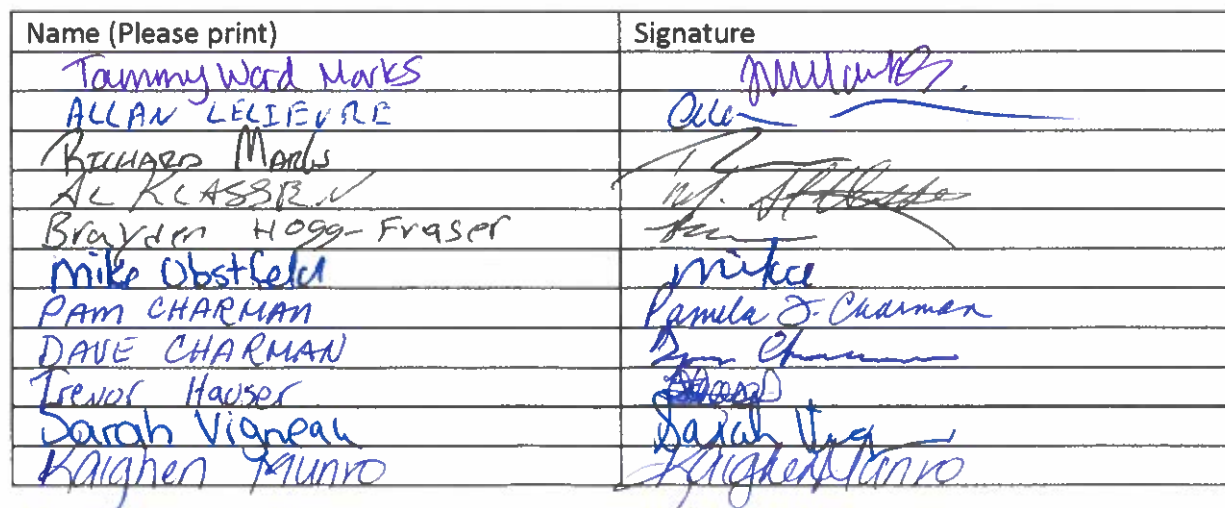 Name (Please print) Signature
Tammy Ward Marks
ALLAN LELIEVRE
RICHARD Marks
AL KLASSEN
Brayden Hogg-Fraser
Mike Obstfeld Mike
PAM CHARMAN Pamela J. Charman
DAVE CHARMAN
Trevor Hauser
Sarah Vigneau Sarah Vig
Kaighen Munro Kaighen Munro